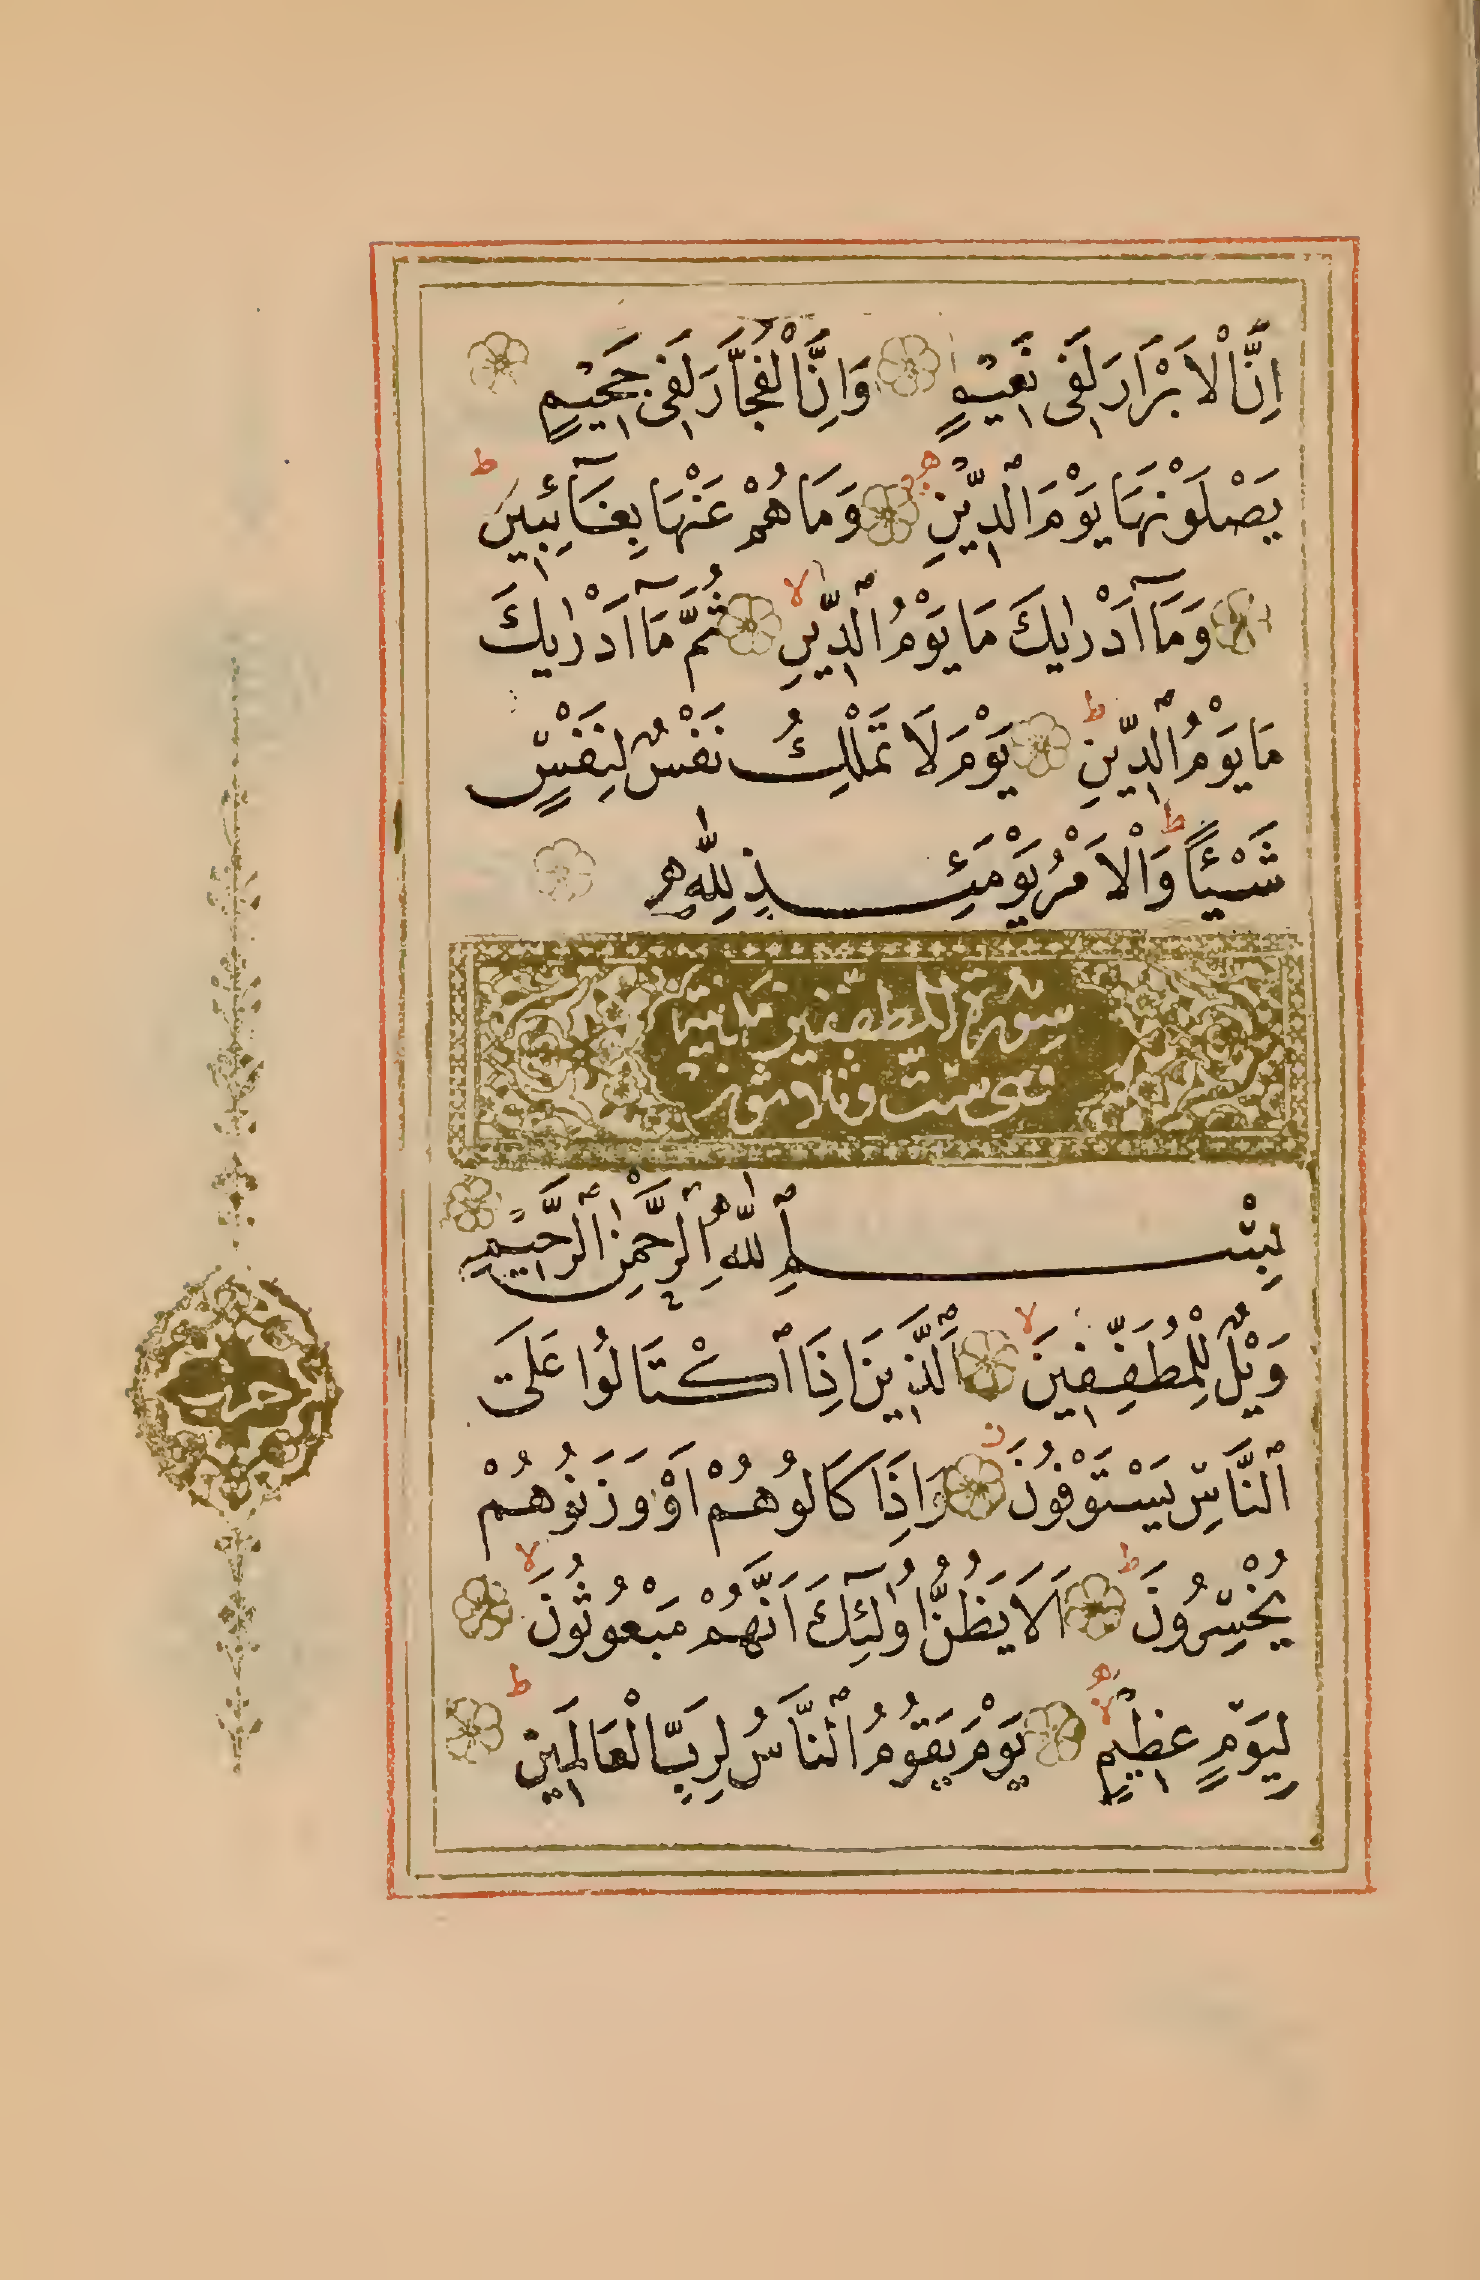 اِنَّ الْاَبْرَارَ لَفٖى نَعٖيمٍ وَاِنَّ الْفُجَّارَ لَفٖى جَحٖيمٍ
يَصْلَوْنَهَا يَوْمَ الدّٖينِ ه وَمَا هُمْ عَنْهَا بِغَٓائِبٖينَ ط
وَمَٓا اَدْرٰيكَ مَا يَوْمُ الدّٖينِ لا ثُمَّ مَٓا اَدْرٰيكَ
مَا يَوْمُ الدّٖينِ ط يَوْمَ لَا تَمْلِكُ نَفْسٌ لِنَفْسٍ
شَيْـًٔا ط وَالْاَمْرُ يَوْمَئِذٍ لِلّٰهِ
سورة المطففين مدنية
وهى ست وثلاثون
بِسْمِ اللّٰهِ الرَّحْمٰنِ الرَّحٖيمِ
وَيْلٌ لِلْمُطَفِّفٖينَ لا اَلَّذٖينَ اِذَا اكْتَالُوا عَلَى
النَّاسِ يَسْتَوْفُونَ ز وَاِذَا كَالُوهُمْ اَوْ وَزَنُوهُمْ
يُخْسِرُونَ ط اَلَا يَظُنُّ اُولٰٓئِكَ اَنَّهُمْ مَبْعُوثُونَ لا
لِيَوْمٍ عَظٖيمٍ لا يَوْمَ يَقُومُ النَّاسُ لِرَبِّ الْعَالَمٖينَ ط
حزب